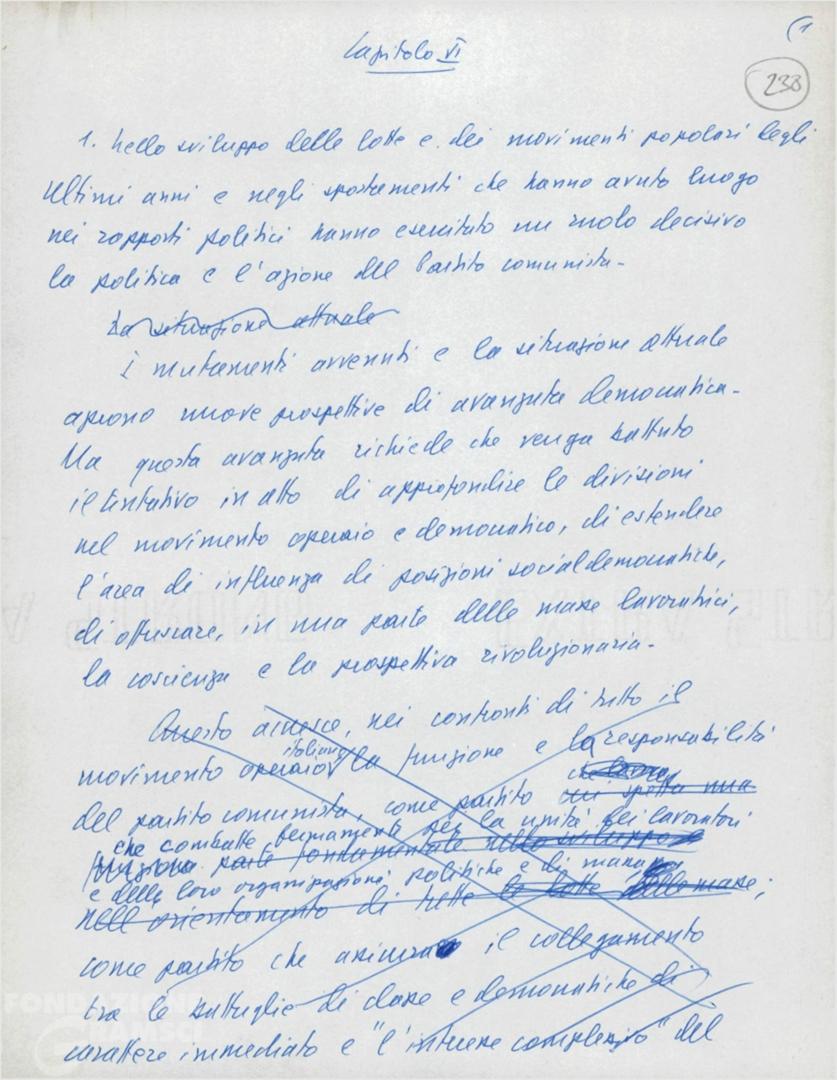 (1
Capitolo VI
238
1. Nello sviluppo delle lotte e dei movimenti popolari degli
ultimi anni e negli spostamenti che hanno avuto luogo
nei rapporti politici hanno esercitato un ruolo decisivo
la politica e l'azione del Partito comunista.
La situazione attuale
I mutamenti avvenuti e la situazione attuale
aprono nuove prospettive di avanzata democratica.
Ma questa avanzata richiede che venga battuto
il tentativo in atto di approfondire le divisioni
nel movimento operaio e democratico, di estendere
l'area di influenza di posizioni socialdemocratiche,
di offuscare, in una parte delle masse lavoratrici,
la coscienza e la prospettiva rivoluzionaria.
Questo accresce, nei confronti di tutto il
italiano
movimento operaio la funzione e la responsabilità
del partito comunista, come partito cui spetta una
che combatte fermamente per la unità dei lavoratori
funzione parte fondamentale nello sviluppo
e delle loro organizzazioni politiche e di massa
nell'orientamento di tutte le lotte delle masse;
come partito che assicura il collegamento
tra le battaglie di classe e democratiche di
carattere immediato e "l'interesse complessivo" del
FONDAZIONE
GRAMSCI